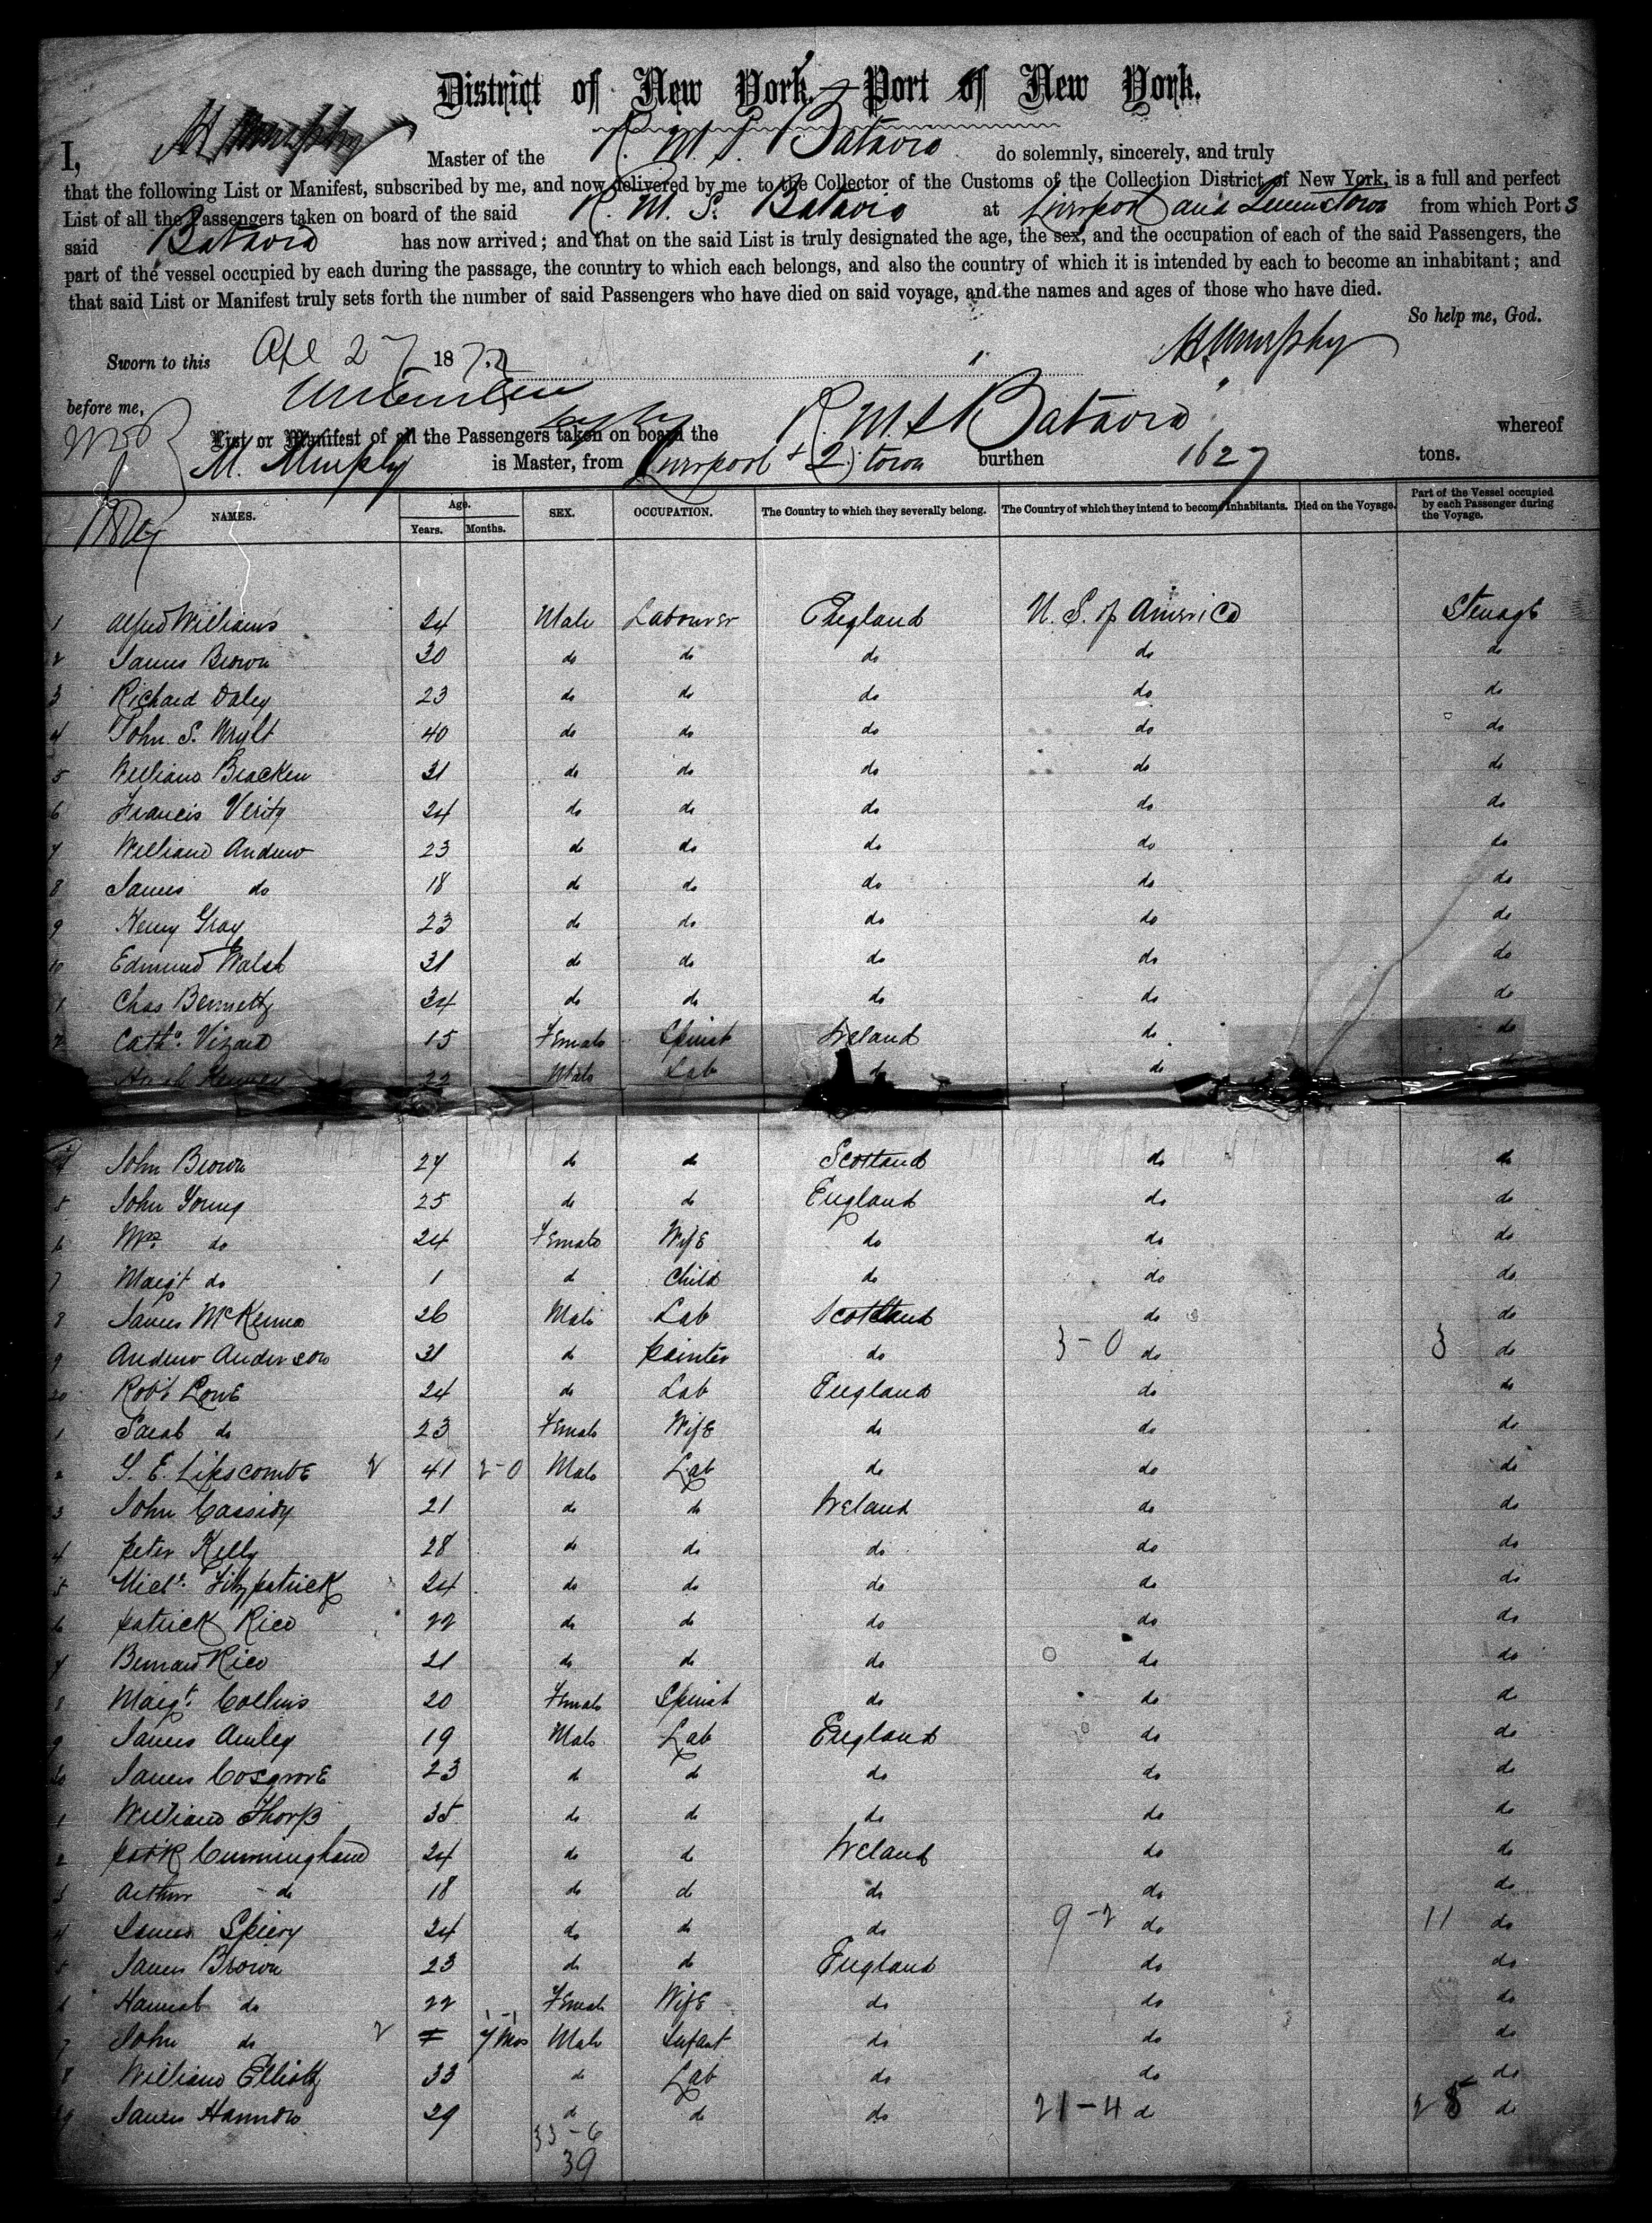 District of New York.—Port of New York.
I, M Murphy Master of the R. M. S. Batavia do solemnly, sincerely, and truly
that the following List or Manifest, subscribed by me, and now delivered by me to the Collector of the Customs of the Collection District of New York, is a full and perfect
List of all the Passengers taken on board of the said R. M. S. Batavia at Liverpool and Queenstown from which Port s
said Batavia has now arrived; and that on the said List is truly designated the age, the sex, and the occupation of each of the said Passengers, the
part of the vessel occupied by each during the passage, the country to which each belongs, and also the country of which it is intended by each to become an inhabitant; and
that said List or Manifest truly sets forth the number of said Passengers who have died on said voyage, and the names and ages of those who have died.
So help me, God.
Sworn to this Apl 27 1872 M Murphy
before me,
List or Manifest of all the Passengers taken on board the R. M. S Batavia whereof
M. Murphy is Master, from Liverpool + Q. town burthen 1627 tons.
NAMES. Age. Years. Months. SEX. OCCUPATION. The Country to which they severally belong. The Country of which they intend to become Inhabitants. Died on the Voyage. Part of the Vessel occupied by each Passenger during the Voyage.
1 Alfred Williams 24 Male Labourer England U. S. of America Steerage
2 James Brown 30 do do do do do
3 Richard Daley 23 do do do do do
4 John S. 40 do do do do do
5 William Bracken 31 do do do do do
6 Francis Verity 24 do do do do do
7 William Andrew 23 do do do do do
8 James do 18 do do do do do
9 Henry Gray 23 do do do do do
10 Edmund Walsh 31 do do do do do
1 Chas Bennett 34 do do do do do
2 Cathe. Vizard 15 Female Spinst Ireland do do
22 Male Lab do do
4 John Brown 24 do do Scotland do do
5 John Young 25 do do England do do
6 Mrs do 24 Female Wife do do do
7 Margt do 1 d Child do do do
8 James McKenna 26 Male Lab Scotland do do
9 Andrew Anderson 31 d painter do 3-0 do 3 do
20 Robt Lowe 24 do Lab England do do
1 Sarah do 23 Female Wife do do do
2 G. E. Lipscombe 2 41 2-0 Male Lab do do do
3 John Cassidy 21 do do Ireland do do
4 peter Kelly 28 do do do do do
5 Michl. Fitzpatrick 24 do do do do do
6 patrick Rice 22 do do do do do
7 Bernard Rice 21 do do do do do
8 Margt. Collins 20 Female Spinst do do do
9 James 19 Male Lab England do do
30 James Cosgrove 23 d d do do do
1 William Thorp 35 do do do do do
2 patk Cunningham 24 do d Ireland do do
3 Arthur do 18 do d do do do
4 James 24 do do do 9-2 do 11 do
5 James Brown 23 do do England do do
6 Hannah do 22 Female Wife do do do
7 John do 2 7 Mos Male Infant do do do
8 William Elliott 33 do Lab do do do
9 James 29 d do do 21-4 d 25 do
33-6
39